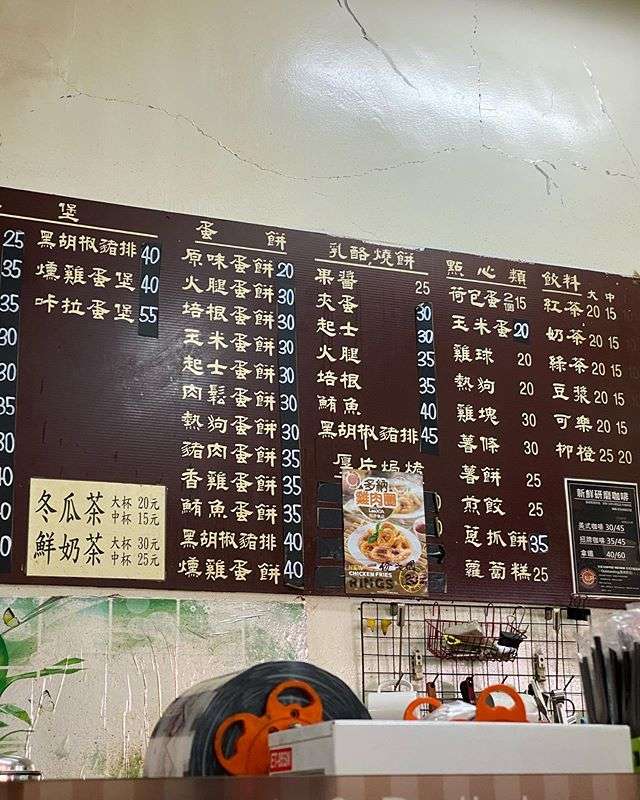 堡
25
35
35
30
30
35
30
40
黑胡椒豬排 40
燻雞蛋堡 40
咔拉蛋堡 55
冬瓜茶 大杯 20元 中杯 15元
鮮奶茶 大杯 30元 中杯 25元
蛋餅
原味蛋餅 20
火腿蛋餅 30
培根蛋餅 30
玉米蛋餅 30
起士蛋餅 30
肉鬆蛋餅 30
熱狗蛋餅 30
豬肉蛋餅 35
香雞蛋餅 35
鮪魚蛋餅 35
黑胡椒豬排 40
燻雞蛋餅 40
乳酪燒餅
果醬 25
夾蛋 30
起士 30
火腿 35
培根 35
鮪魚 40
黑胡椒豬排 45
厚片焗烤
多納
雞肉圈
NEW
CHICKEN FLAKE
RINGS
點心類
荷包蛋 2個 15
玉米蛋 20
雞球 20
熱狗 20
雞塊 30
薯條 30
薯餅 25
煎餃 25
蔥抓餅 35
蘿蔔糕 25
飲料 大 中
紅茶 20 15
奶茶 20 15
綠茶 20 15
豆漿 20 15
可樂 20 15
柳橙 25 20
新鮮研磨咖啡
美式咖啡 30/45
招牌咖啡 35/45
拿鐵 40/60